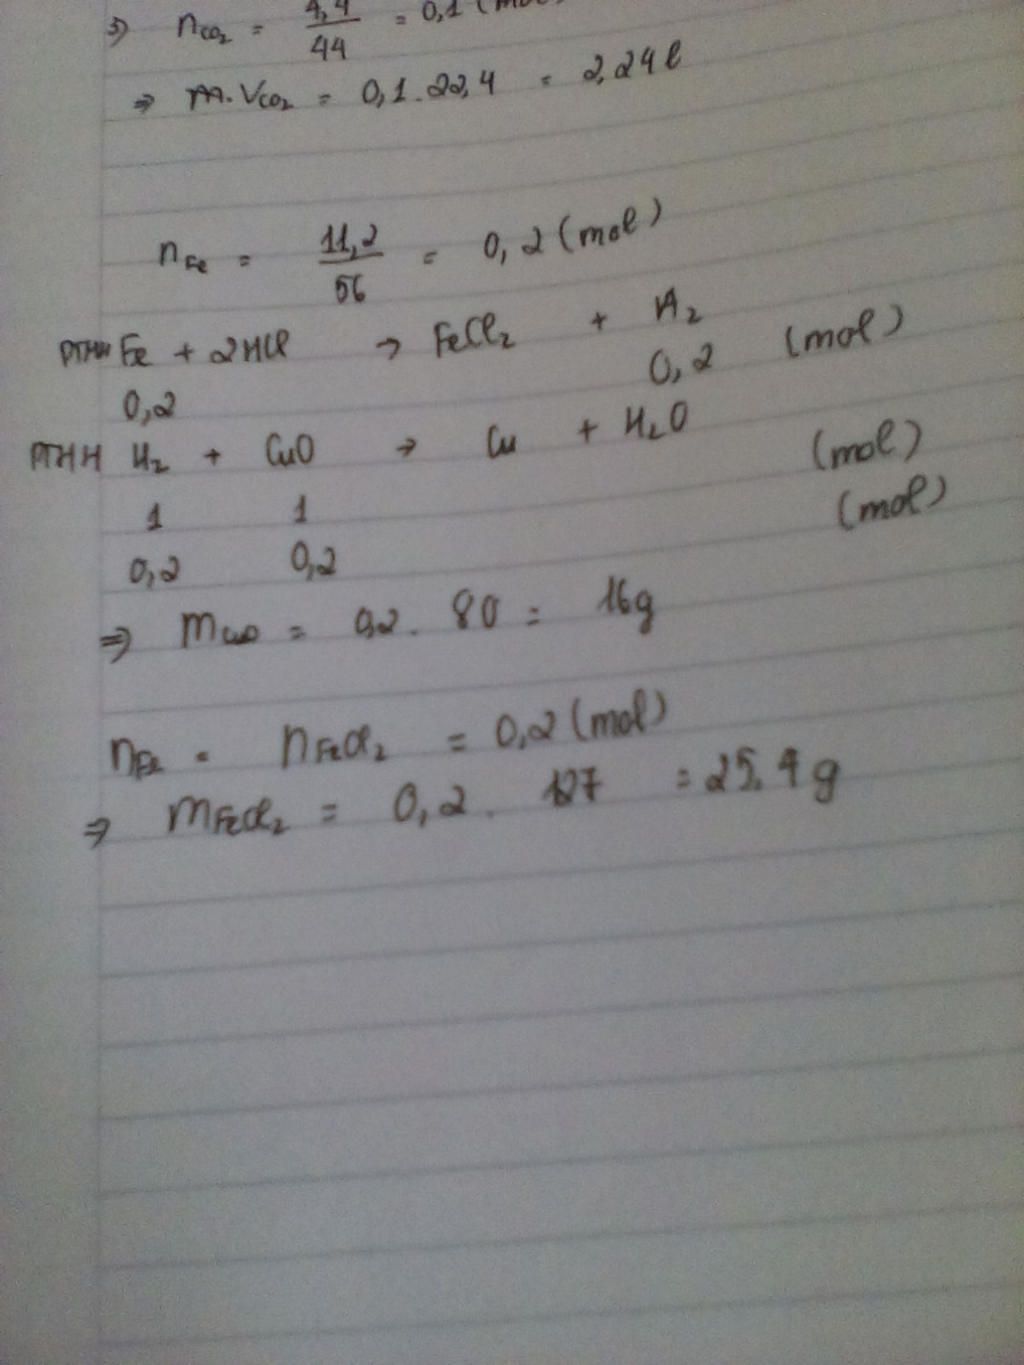 => nCO2 = 4,4/44 = 0,1 (mol
=> VCO2 = 0,1.22,4 = 2,24l
nFe = 11,2/56 = 0,2 (mol)
PTHH Fe + 2HCl → FeCl2 + H2
0,2 0,2 (mol)
PTHH H2 + CuO → Cu + H2O
1 1 (mol)
0,2 0,2 (mol)
=> mCuO = 0,2 . 80 = 16g
nFe = nFeCl2 = 0,2 (mol)
=> mFeCl2 = 0,2 . 127 = 25,4g